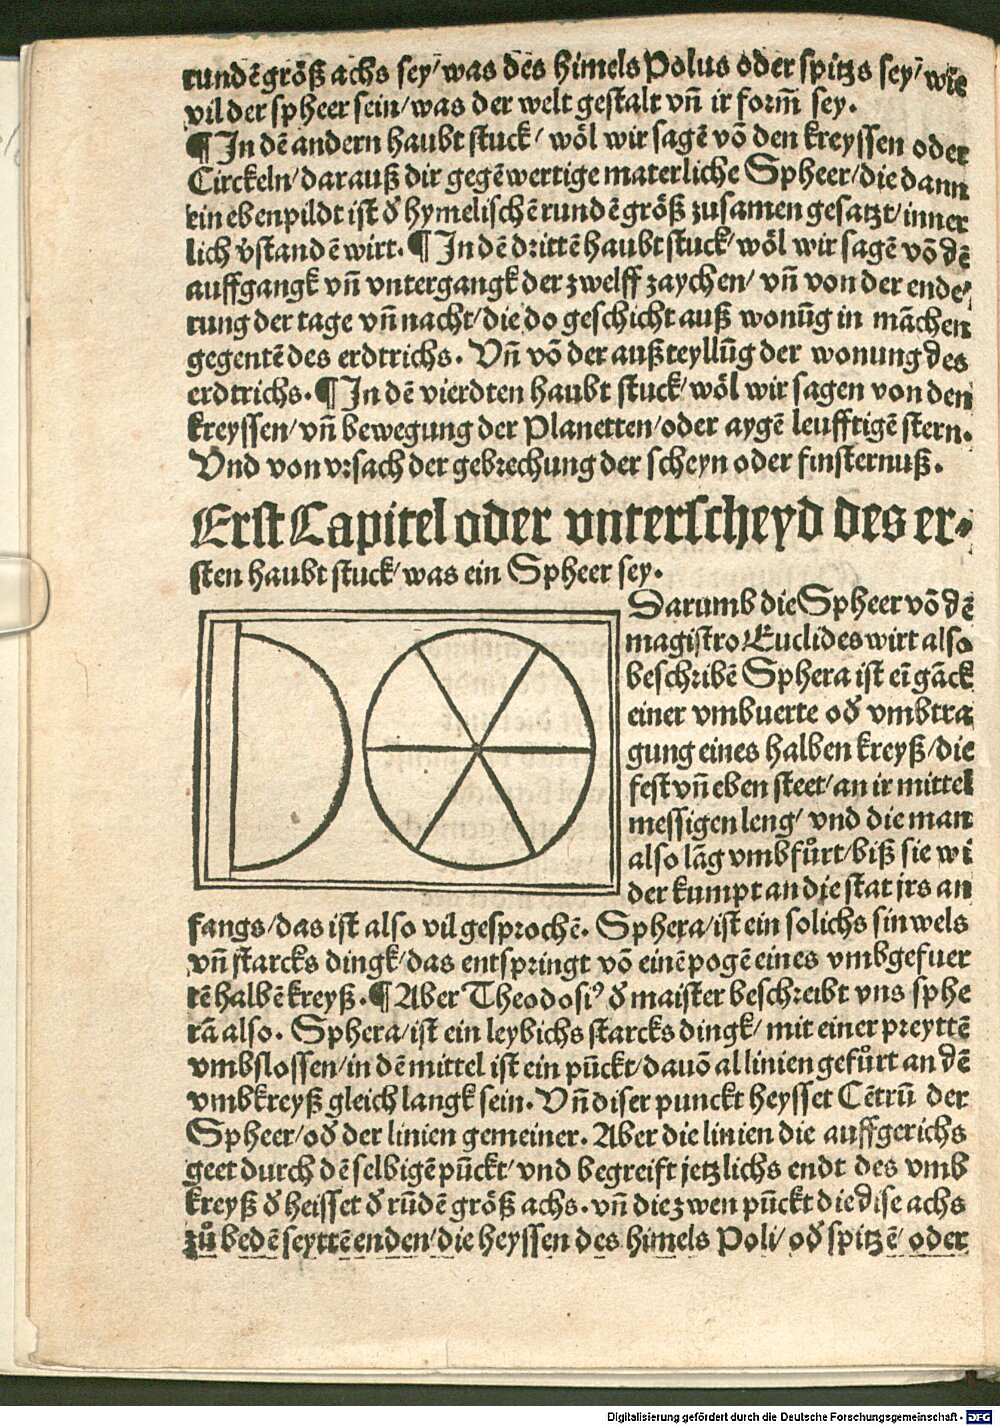 rundēgröß achs sey/was des himels Polus oder spitzs sey/wie
vil der spheer sein/was der welt gestalt vn̄ ir form̄ sey.
¶In dē andern haubt stuck/ wöl wir sagē vō den kreyssen oder
Circkeln/darauß dir gegēwertige materliche Spheer/die dann
ein ebenpildt ist d̄ hymelischē rundē größ zusamen gesatzt/inner
lich v̄standē wirt.¶In dē drittē haubt stuck/wöl wir sagē vō dē
auffgangk vn̄ vntergangk der zwelff zaychen/ vn̄ von der ende/
rung der tage vn̄ nacht/die do geschicht auß wonūg in māchen
gegentē des erdtrichs. Vn̄ vō der außteyllūg der wonung des
erdtrichs.¶In dē vierdten haubt stuck/wöl wir sagen von den
kreyssen/vn̄ bewegung der Planetten/oder aygē leufftigē stern.
Vnd von vrsach der gebrechung der scheyn oder finsternuß.
Erst Capitel oder vnterscheyd des er-
sten haubt stuck/was ein Spheer sey.
Darumb die Spheer vō dē
magistro Euclides wirt also
beschribē Sphera ist eī gāck
einer vmbuerte od̄ vmbtra
gung eines halben kreyß/die
fest vn̄ eben steet/an ir mittel
messigen leng/ vnd die man
also lāg vmbfůrt/biß sie wi
der kumpt an die stat irs an
fangs/das ist also vil gesprochē. Sphera/ist ein solichs sinwels
vn̄ starcks dingk/das entspringt vō einē pogē eines vmbgefuer
tē halbē kreyß.¶Aber Theodosi⁹ d̄ maister beschreibt vns sphe
rā also. Sphera/ist ein leybichs starcks dingk/ mit einer preyttē
vmbslossen/in dē mittel ist ein pūckt/dauō al linien gefůrt an dē
vmbkreyß gleich langk sein. Vn̄ diser punckt heysset Cētrū der
Spheer/od̄ der linien gemeiner. Aber die linien die auffgerichs
geet durch dē selbigē pūckt/vnd begreift jetzlichs endt des vmb
kreyß d̄ heisset d̄ rūdē größ achs. vn̄ die zwen pūckt die dise achs
zů bedē seyttē enden/die heyssen des himels Poli/ od̄ spitzē/ oder
Digitalisierung gefördert durch die Deutsche Forschungsgemeinschaft - DFG